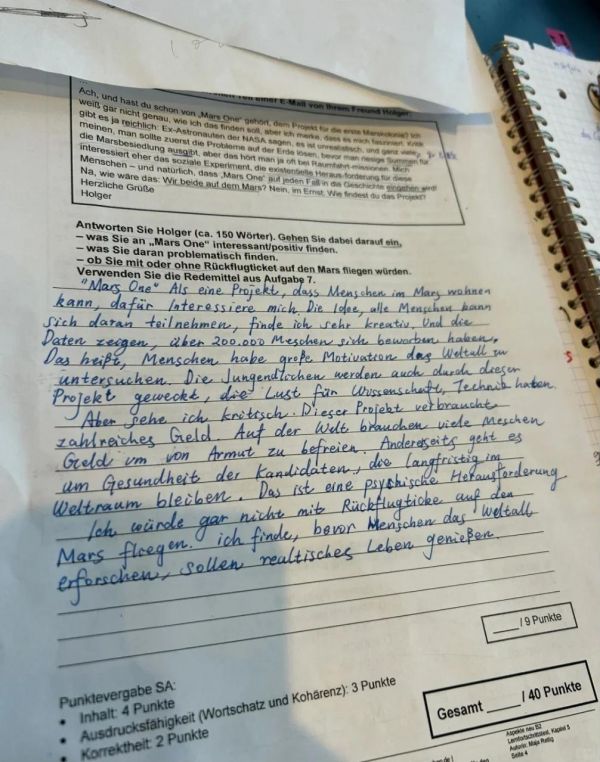 Teil einer E-Mail von Ihrem Freund Holger:
Ach, und hast du schon von „Mars One" gehört, dem Projekt für die erste Marskolonie? Ich
weiß gar nicht genau, wie ich das finden soll, aber ich merke, dass es mich fasziniert. Kritik
gibt es ja reichlich: Ex-Astronauten der NASA sagen, es ist unrealistisch, und ganz viele
meinen, man sollte zuerst die Probleme auf der Erde lösen, bevor man riesige Summen für
die Marsbesiedlung ausgibt, aber das hört man ja oft bei Raumfahrt-missionen. Mich
interessiert eher das soziale Experiment, die existentielle Heraus-forderung für diese
Menschen – und natürlich, dass „Mars One" auf jeden Fall in die Geschichte eingehen wird!
Na, wie wäre das: Wir beide auf dem Mars? Nein, im Ernst. Wie findest du das Projekt?
Herzliche Grüße
Holger
Antworten Sie Holger (ca. 150 Wörter). Gehen Sie dabei darauf ein,
– was Sie an „Mars One" interessant/positiv finden.
– was Sie daran problematisch finden.
– ob Sie mit oder ohne Rückflugticket auf den Mars fliegen würden.
Verwenden Sie die Redemittel aus Aufgabe 7.
"Mars One" Als eine Projekt, dass Menschen im Mars wohnen
kann, dafür Interessiere mich. Die Idee, alle Menschen kann
sich daran teilnehmen, finde ich sehr kreativ. Und die
Daten zeigen, über 200.000 Meschen sich beworben haben.
Das heißt, Menschen habe große Motivation das Weltall zu
untersuchen. Die Jungendlichen werden auch durch dieser
Projekt geweckt, die Lust für Wissenschaft, Technik haben.
Aber sehe ich kritsch. Dieser Projekt verbraucht
zahlreiches Geld. Auf der Welt brauchen viele Meschen
Geld um von Armut zu befreien. Andereseits geht es
um Gesundheit der Kandidaten, die langfristig im
Weltraum bleiben. Das ist eine psychische Herausforderung
Ich würde gar nicht mit Rückflugticke auf den
Mars fliegen. ich finde, bevor Menschen das Weltall
erforschen, sollen realtisches Leben genießen.
/ 9 Punkte
Punktevergabe SA:
• Inhalt: 4 Punkte
• Ausdrucksfähigkeit (Wortschatz und Kohärenz): 3 Punkte
• Korrektheit: 2 Punkte
Gesamt / 40 Punkte
Aspekte neu B2
Lernfortschrittstest, Kapitel 5
Autorin: Maja Rettig
Seite 4